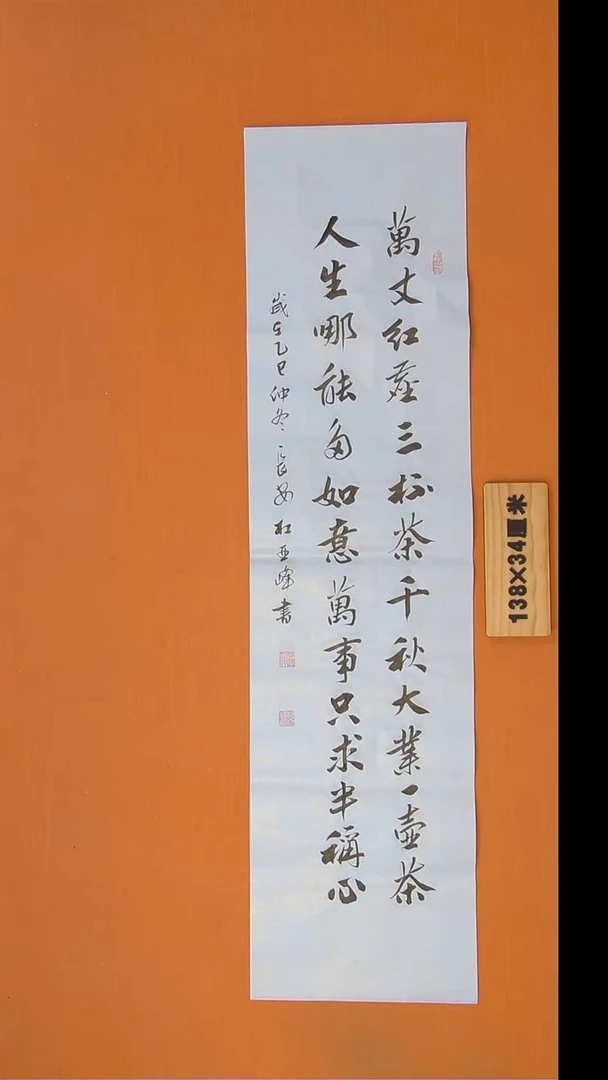 萬丈紅塵三杯茶千秋大業一壺茶
人生哪能多如意萬事只求半稱心
歲在乙巳仲冬長安杜亚峰書
138×34厘米